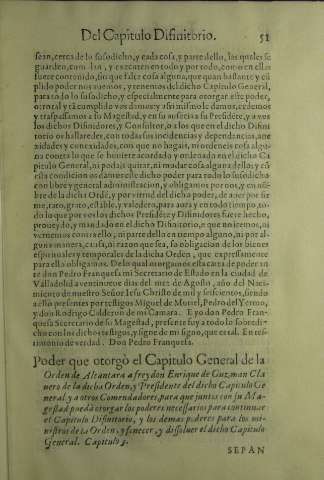 Del Capitulo Difinitorio. 51
sean, cerca de lo susodicho, y cada cosa, y parte dello, las quales se
guarden, cumplan, y executen en todo y por todo, como en ellas
fuere contenido, sin que falte cosa alguna, que quan bastante y cũ
plido poder nos auemos, y tenemos del dicho Capitulo General,
para todo lo susodicho, y especialmente para otorgar este poder,
otro tal y tã cumplido vos damos y assi mismo le damos, cedemos
y traspassamos a su Magestad, y en su ausencia a su Presidẽte, y a vos
los dichos Difinidores, y Consultor, o a los que en el dicho Difini
torio os hallaredes, con todas sus incidencias y dependencias, ane
xidades y conexidades, con que no hagais, ni ordeneis cosa algu-
na contra lo que se huuiere acordado y ordenado en el dicho Ca
pitulo General, ni podais quitar, ni mudar cosa alguna dello, y cõ
esta condicion os damos este dicho poder para todo lo susodicho
con libre y general administracion, y obligamos por nos, y en nõ-
bre de la dicha Ordẽ, y por virtud del dicho poder, de auer por fir
me, rato, grato, estable, y valedero, para aora y en todo tiempo, to-
do lo que por vos los dichos Presidẽte y Difinidores fuere hecho,
proueydo, y mandado en el dicho Difinitorio, y que no iremos, ni
vernemos contra ello, ni parte dello en tiempo alguno, ni por al-
guna manera, causa, ni razon que sea, so obligacion de los bienes
espirituales y temporales de la dicha Orden, que expressamente
para ello obligamos. De lo qual mandamos dar esta carta de poder an
te don Pedro Franquesa mi Secretario de Estado en la ciudad de
Valladolid a veintinueue dias del mes de Agosto, año del Naci-
miento de nuestro Señor Iesu Christo de mil y seiscientos, siendo
a ello presentes por testigos Miguel de Muriel, Pedro del Yermo,
y don Rodrigo Calderon de mi Camara. E yo don Pedro Fran-
quesa Secretario de su Magestad, presente fuy a todo lo sobredi-
cho con los dichos testigos, y signe de mi signo, que es tal. En tes-
timonio de verdad. Don Pedro Franquesa.
Poder que otorgò el Capitulo General de la
Orden de Alcantara a frey don Enrique de Guzman Cla
uero de la dicha Orden, y Presidente del dicho Capitulo Ge
neral y a otros Comendadores, para que juntos con su Ma-
gestad pueda otorgar los poderes necessarios para continuar
el Capitulo Difinitorio, y los demas poderes para los mi-
nistros de la Orden, y fenecer, y dissoluer el dicho Capitulo
General. Capitulo 3.
SEPAN